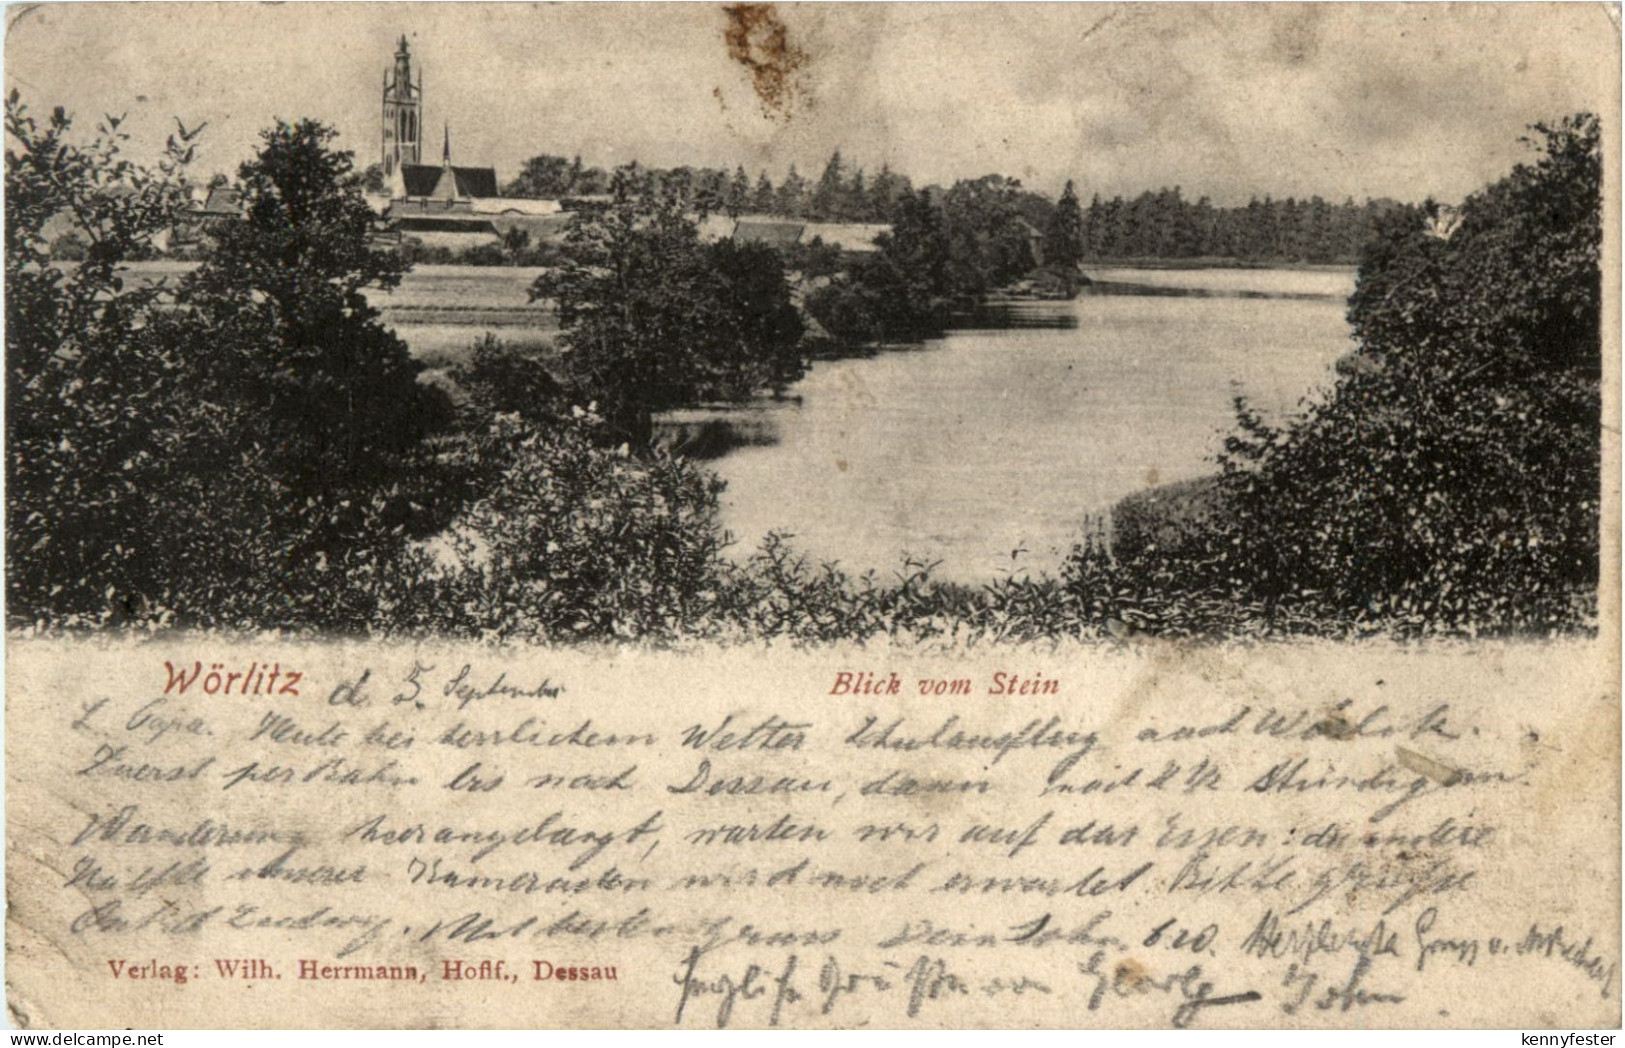 Wörlitz d 5. September Blick vom Stein
L. Papa. Heute bei herrlichem Wetter Schulausflug nach Wörlitz.
Zuerst per Bahn bis nach Dessau, dann nach 2 1/2 Stündigem
Wanderung herangelangt, warten wir auf das Essen: die andere
Hälfte unserer Kameraden wird noch erwartet. Bitte grüsse
Ludwig. Mit besten Gruss Dein Sohn Herzlichste Gruss v.
Verlag: Wilh. Herrmann, Hoflf., Dessau
von Georg John
kennyfester